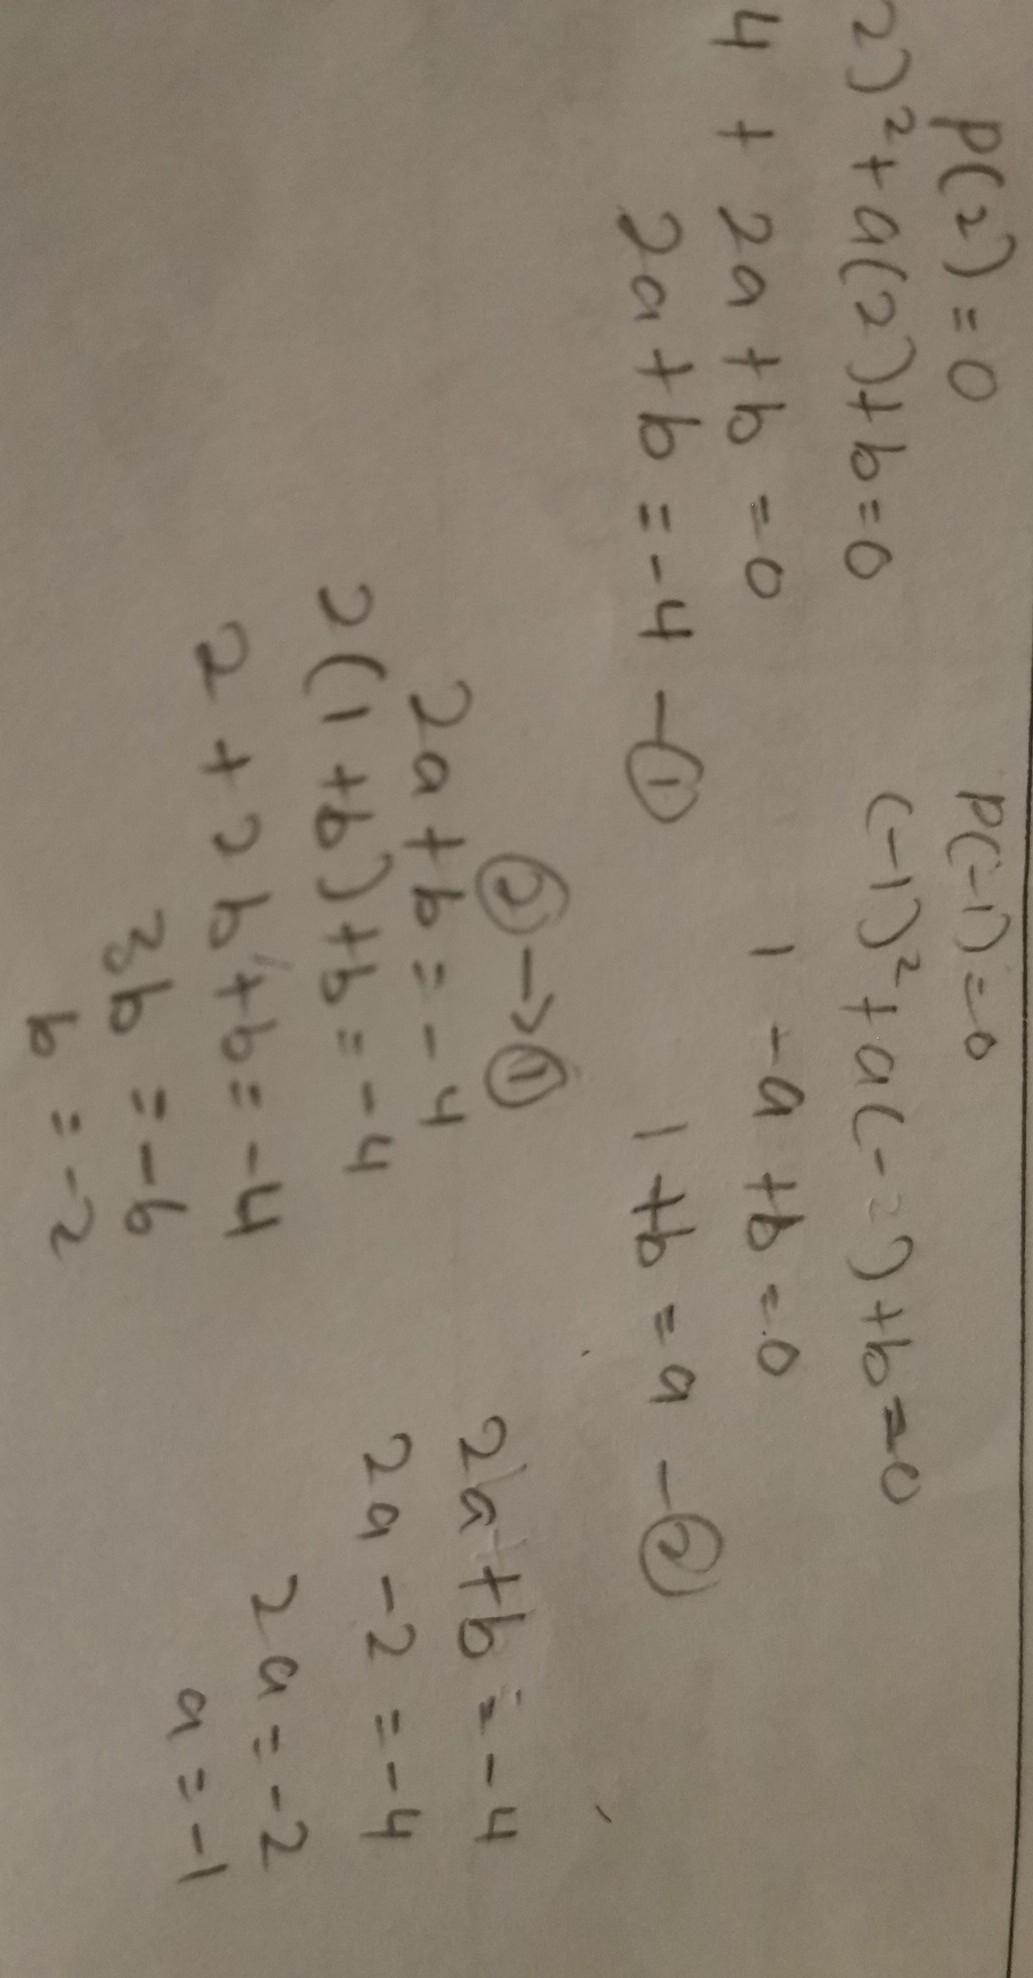 P(2) = 0
2)² + a(2) + b = 0
4 + 2a + b = 0
2a + b = -4 - ①
P(-1) = 0
(-1)² + a(-1) + b = 0
1 - a + b = 0
1 + b = a - ②
② → ①
2a + b = -4
2(1 + b) + b = -4
2 + 2b + b = -4
3b = -6
b = -2
2a + b = -4
2a - 2 = -4
2a = -2
a = -1